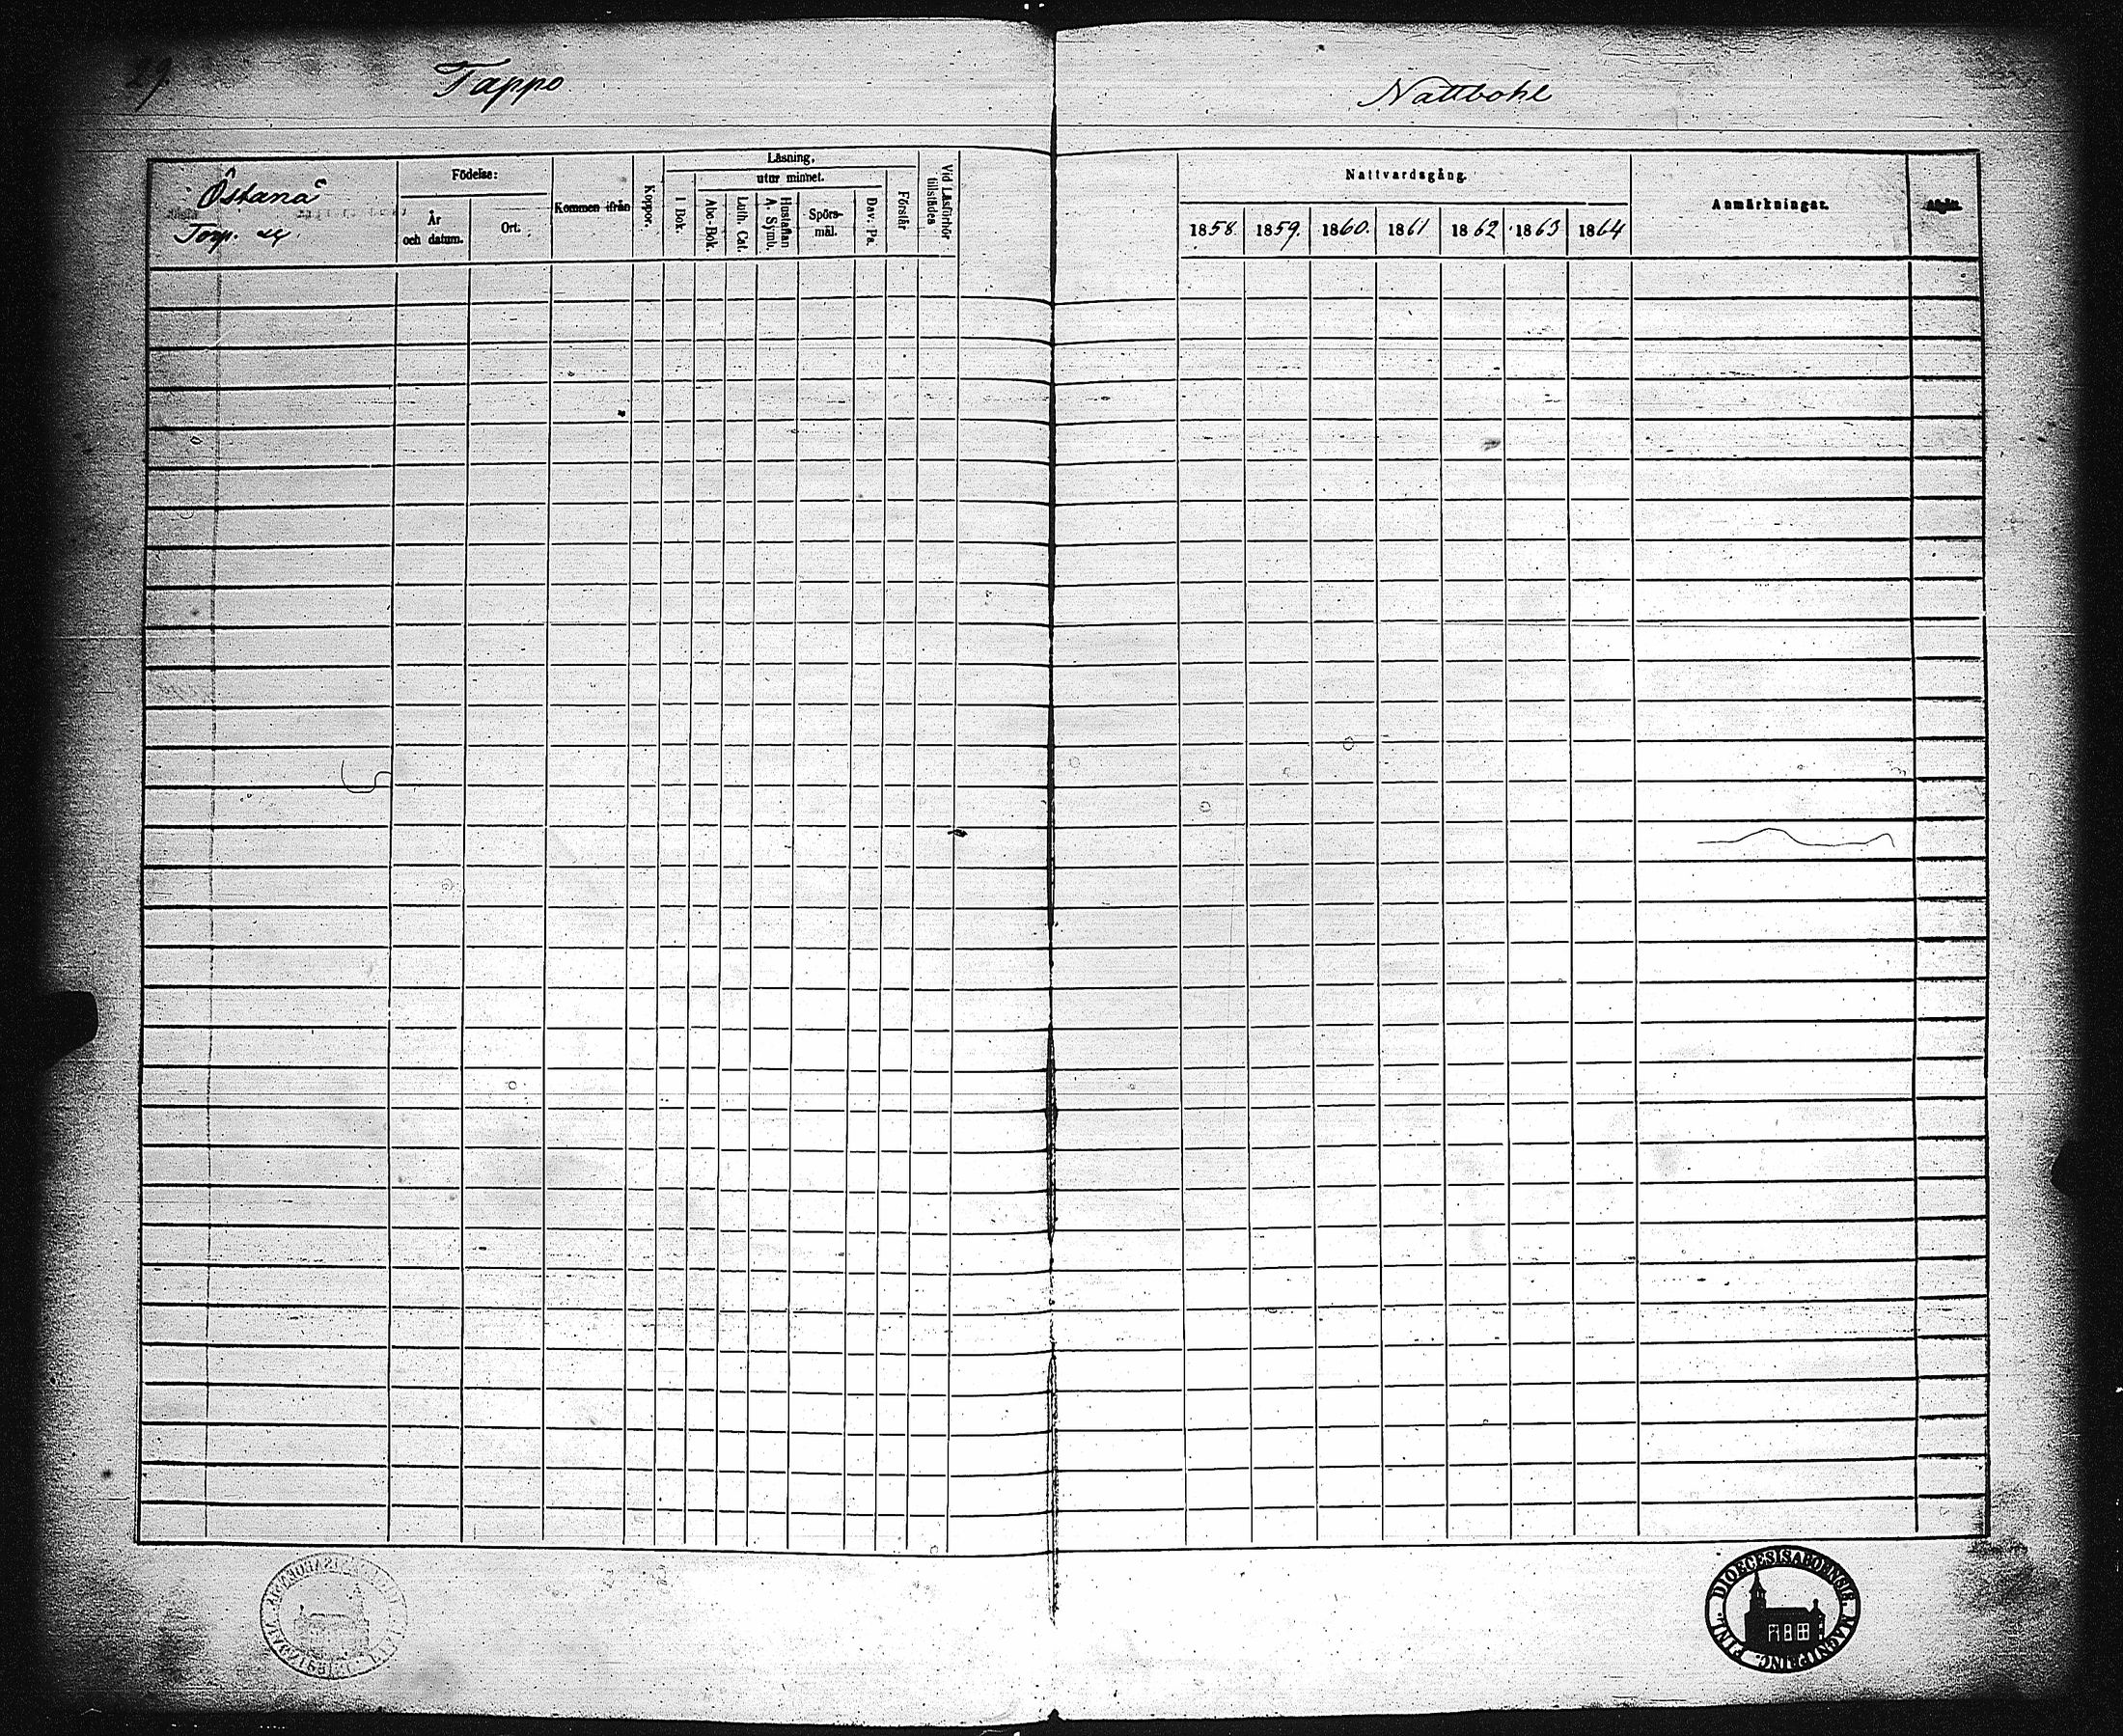 29.
Tappo
Nattbohl
Östanå
Torp.
Födelse:
År
och datum.
Ort.
Kommen ifrån
Koppor.
Läsning,
utur minnet.
I Bok.
Abc-Bok.
Luth. Cat.
Hustaflan
A. Symb.
Spörs-
mål.
Dav. Ps.
Förstår
Vid Läsförhör
tillstädes
Nattvardsgång.
1858. 1859. 1860. 1861 1862 1863 1864
Anmärkningar.
DIOECESIS ABOENSIS. MAGNI PRINC. FINL.